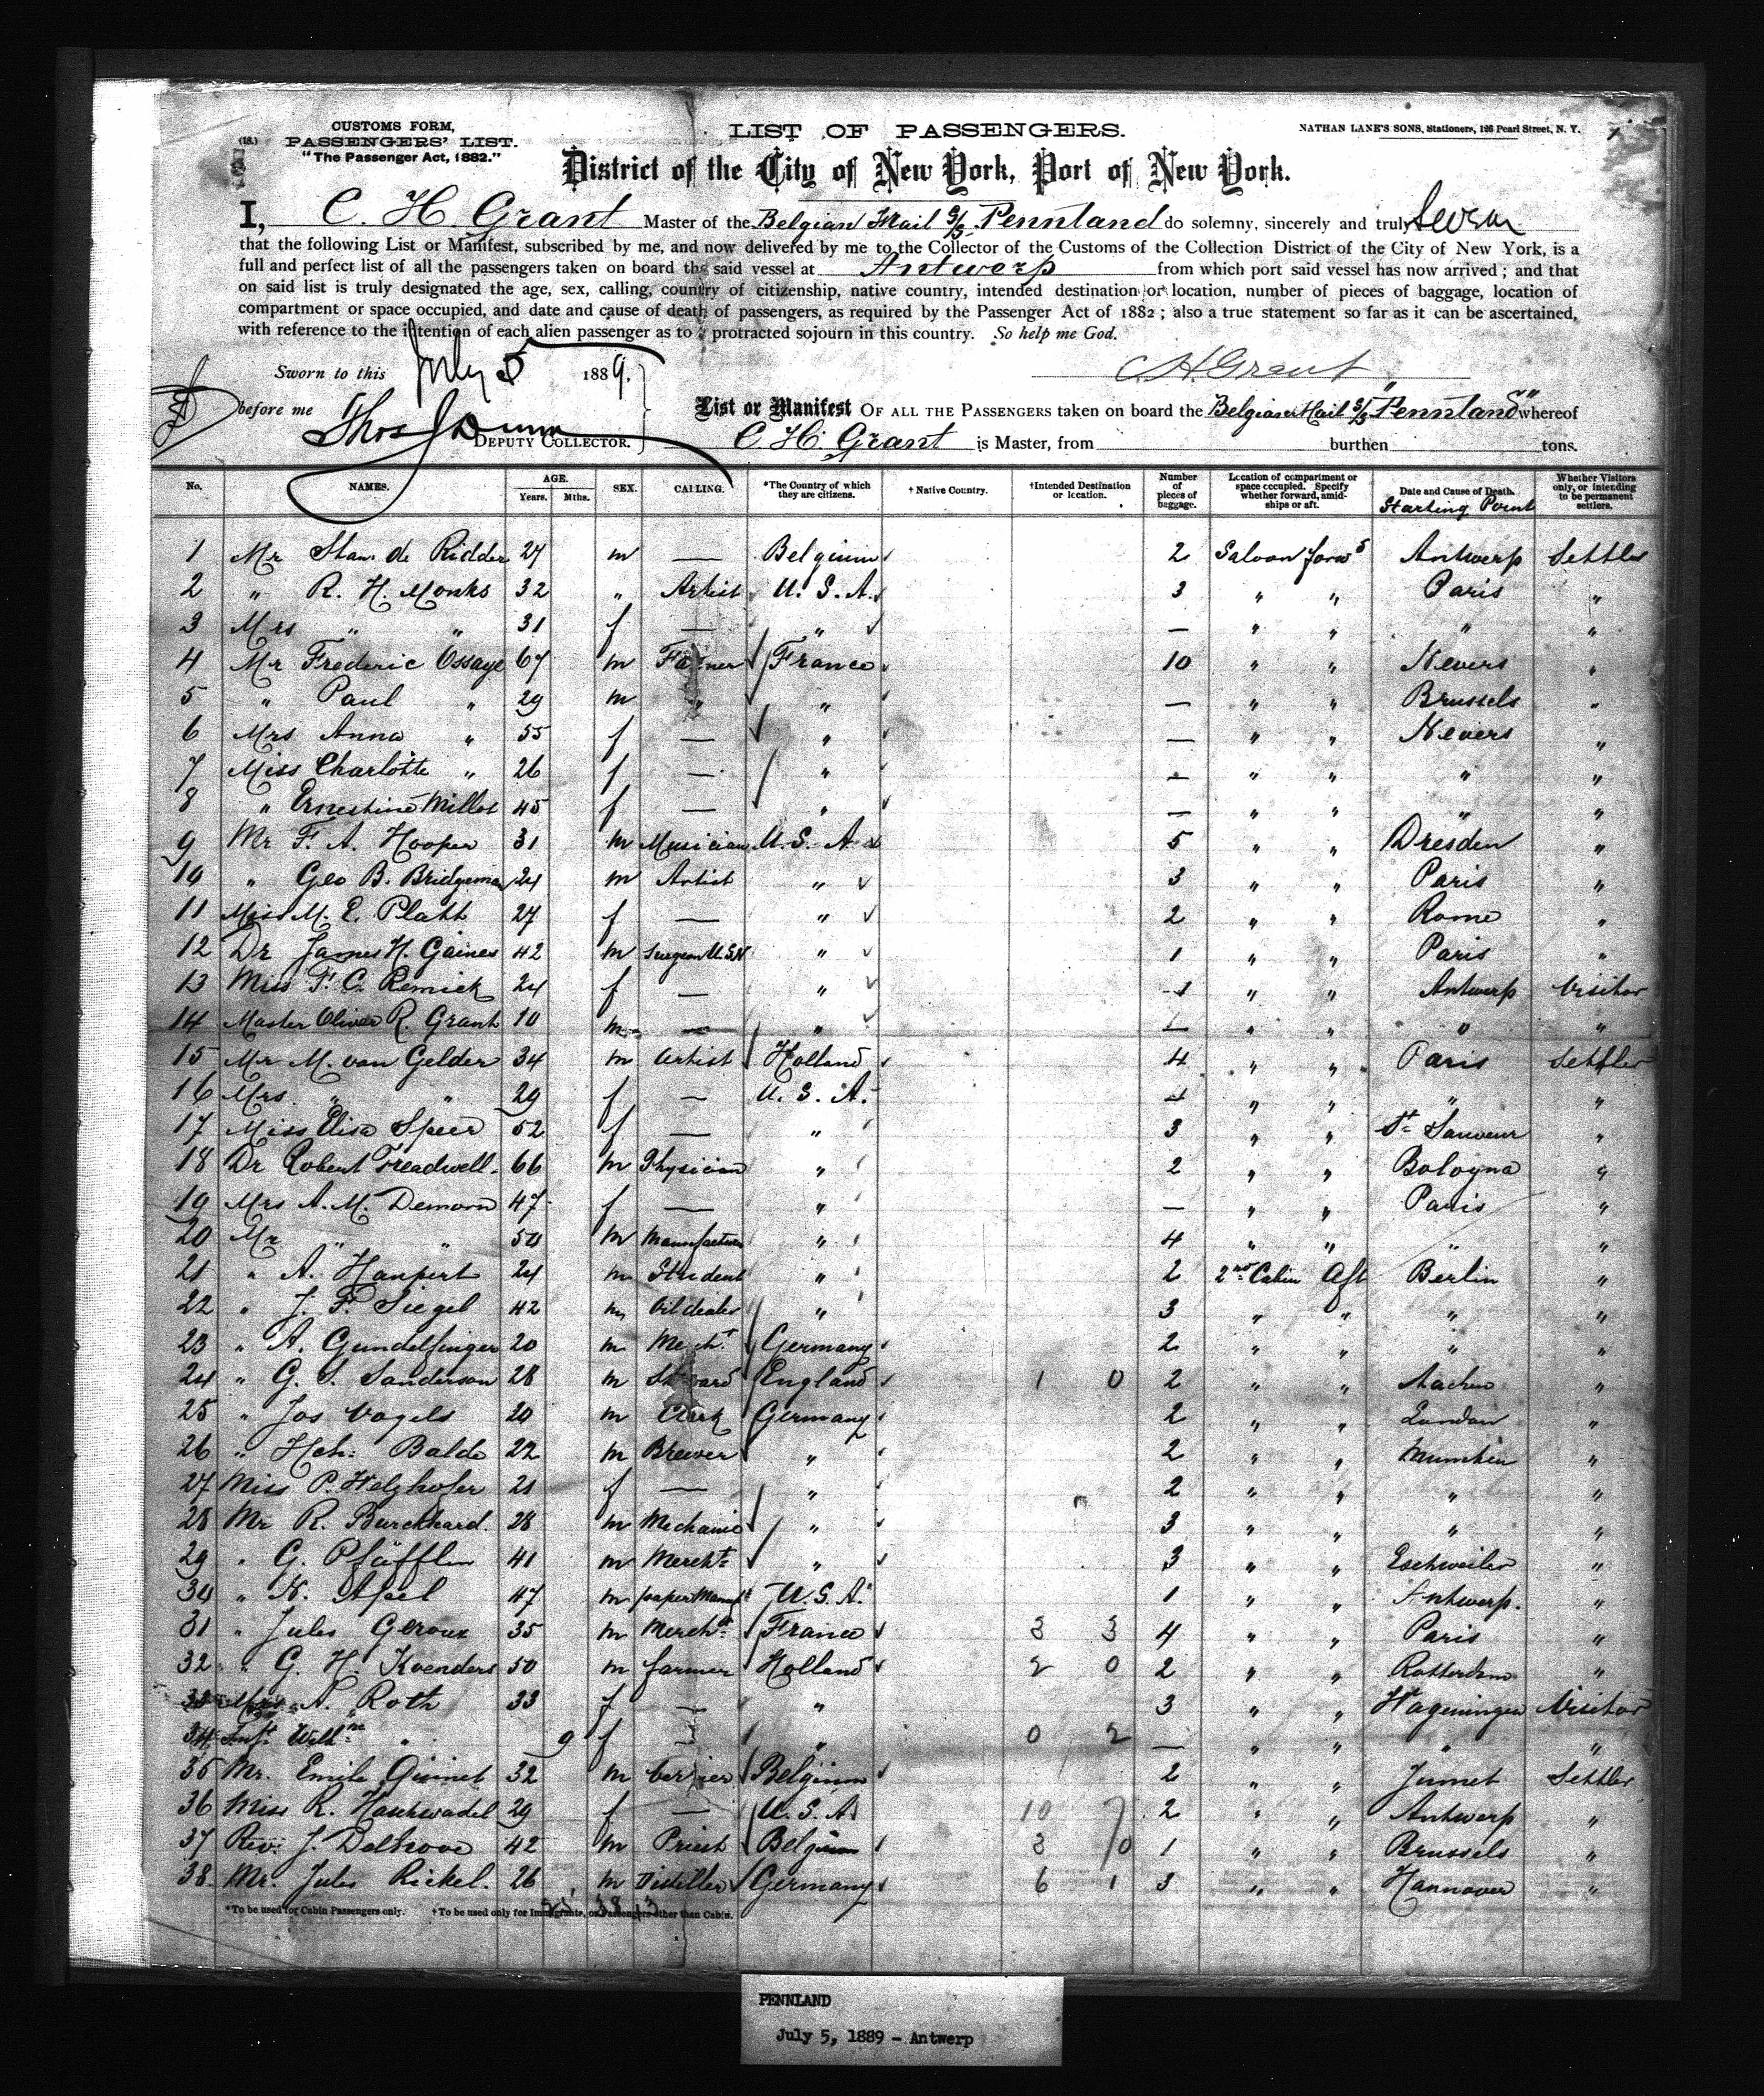 (18.)
CUSTOMS FORM,
PASSENGERS' LIST.
"The Passenger Act, 1882."
LIST OF PASSENGERS.
NATHAN LANE'S SONS, Stationers, 126 Pearl Street, N. Y.
District of the City of New York, Port of New York.
I, C. H. Grant Master of the Belgian Mail S/S Pennland do solemny, sincerely and truly swear
that the following List or Manifest, subscribed by me, and now delivered by me to the Collector of the Customs of the Collection District of the City of New York, is a
full and perfect list of all the passengers taken on board the said vessel at Antwerp from which port said vessel has now arrived; and that
on said list is truly designated the age, sex, calling, country of citizenship, native country, intended destination or location, number of pieces of baggage, location of
compartment or space occupied, and date and cause of death of passengers, as required by the Passenger Act of 1882; also a true statement so far as it can be ascertained,
with reference to the intention of each alien passenger as to protracted sojourn in this country. So help me God.
Sworn to this July 5 1889. C H Grant
before me Thos J Dunn
DEPUTY COLLECTOR.
List or Manifest OF ALL THE PASSENGERS taken on board the Belgian Mail S/S "Pennland" whereof
C. H. Grant is Master, from burthen tons.
No. NAMES. AGE. Years. Mths. SEX. CALLING. *The Country of which they are citizens. † Native Country. †Intended Destination or location. Number of pieces of baggage. Location of compartment or space occupied. Specify whether forward, amidships or aft. Date and Cause of Death. Starting Point Whether Visitors only, or intending to be permanent settlers.
1 Mr de Ridder 27 m — Belgium 2 Saloon forwd Antwerp Settler
2 " R. H. Monks 32 " Artist U. S. A. 3 " " Paris "
3 Mrs " " 31 f — " — " " " "
4 Mr Frederic Ossaye 67 m Farmer France 10 " " Nevers "
5 " Paul " 29 m " " — " " Brussels "
6 Mrs Anna " 55 f — " — " " Nevers "
7 Miss Charlotte " 26 f — " — " " " "
8 " Ernestine Millot 45 f — " — " " " "
9 Mr F. A. Hooper 31 m Musician U. S. A. 5 " " Dresden "
10 " Geo B. Bridgeman 24 m Artist " 3 " " Paris "
11 Miss M. E. Platt 27 f — " 2 " " Rome "
12 Dr James H. Gaines 42 m Surgeon U.S.N " 1 " " Paris "
13 Miss F. C. Remick 24 f — " 1 " " Antwerp Visitor
14 Master Oliver R. Grant 10 m — " 1 " " " "
15 Mr M. van Gelder 34 m Artist Holland 4 " " Paris Settler
16 Mrs " " 29 f — U. S. A. " " " "
17 Miss Elisa Speer 52 f — " 3 " " St Sauveur "
18 Dr Robert Treadwell 66 m Physician " 2 " " Bologna "
19 Mrs A. M. 47 f — " — " " Paris "
20 Mr " " 50 m Manufacturer " 4 " " " "
21 " A. Haupert 24 m Student " 2 2nd Cabin Aft Berlin "
22 " J. F. Siegel 42 m Oil dealer " 3 " " " "
23 " A. Gundelfinger 20 m Mercht Germany 2 " " " "
24 " G. S. Sanderson 28 m Steward England 1 0 2 " " Aachen "
25 " Jos Vogels 20 m Clerk Germany 2 " " "
26 " Hch: Balde 22 m Brewer " 2 " " Munchen "
27 Miss P. Helzhofer 21 f — " 2 " " " "
28 Mr R. Burckhard. 28 m Mechanic " 3 " " " "
29 " G. Pfäfflin 41 m Mercht " 3 " " Eschweiler "
30 " N. Apel 47 m paper Manuft U. S. A. 1 " " Antwerp. "
31 " Jules Geroux 35 m Mercht France 3 3 4 " " Paris "
32 " G. H. Koenders 50 m farmer Holland 2 0 2 " " Rotterdam "
33 A. Roth 33 f — " 3 " " Wageningen Visitor
34 Inft Wilhne " 9 f " 0 2 — " " " "
35 Mr. Emile Quinet 32 m Verrier Belgium 2 " " Jumet Settler
36 Miss R. Haschwadel 29 f — U. S. A. 10 7 2 " " Antwerp "
37 Rev: J. Delbrove 42 m Priest Belgium 3 0 1 " " Brussels "
38. Mr. Jules Rickel. 26 m Distiller Germany 6 1 3 " " Hannover "
*To be used for Cabin Passengers only. †To be used only for Immigrants, or Passengers other than Cabin.
PENNLAND
July 5, 1889 - Antwerp